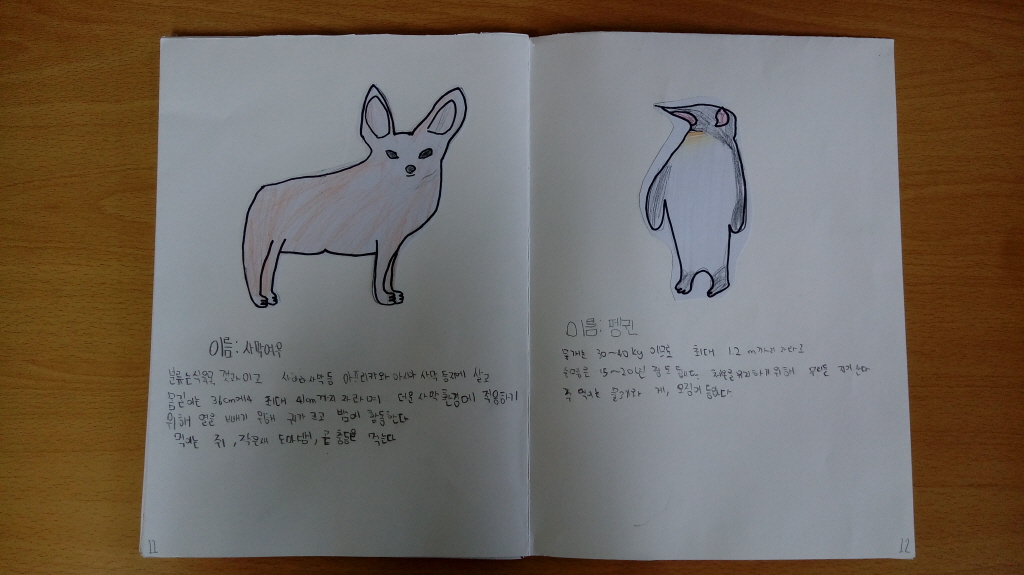 이름: 사막여우
분류는 식육목 갯과이고 사하라사막등 아프리카와 아시아 사막 등지에 살고
몸길이는 36cm에서 최대 41cm까지 자라며 더운 사막환경에 적응하기
위해 열을 빼기 위해 귀가 크고 밤에 활동한다
먹이는 쥐, 작은새 도마뱀, 곤충들을 먹는다
11
이름: 펭귄
무게는 30~40kg 이고 최대 1.2m까지 자라고
수명은 15~20년 정도 된다. 체온을 유지하기 위해 무리를
주 먹이는 크릴새우 게, 오징어 등있다.
12